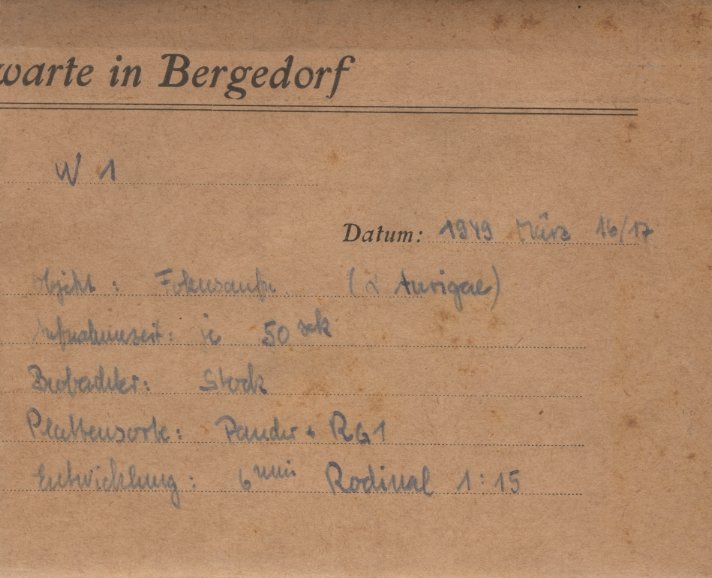 warte in Bergedorf
W 1
Datum: 1949 März 16/17
Objekt: Fokusaufn. (α Aurigae)
Aufnahmezeit: je 50 sek
Beobachter: Stock
Plattensorte: + RG1
Entwicklung: 6 min Rodinal 1:15